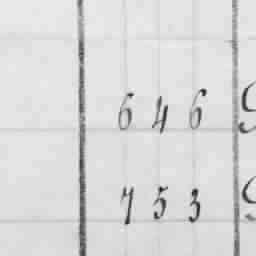 646
753